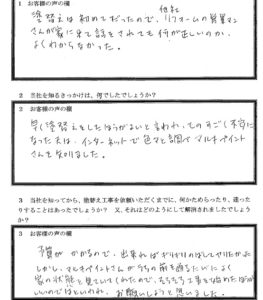 1 お客様の声の欄
塗替えは初めてだったので、他社リフォームの営業マン
さんが家に来て話をされても何が正しいのか、
よくわからなかった。
2 当社を知るきっかけは、何でしたでしょうか?
2 お客様の声の欄
早く塗替えをしたほうがよいと言われ、ものすごく不安に
なった夫は、インターネットで色々と調べ マルキペイント
さんを知りました。
3 当社を知ってから、塗替え工事を依頼いただくまでに、何かためらったり、迷った
りすることはあったでしょうか? 又、それはどのようにして解消されましたでしょう
か?
3 お客様の声の欄
予算がかかるので、出来れば
しかし、マルキペイントさんがうちの前を通るたびによく
家の状態を見ていてくれたので、そろそろ工事を始めたほうが
いいのではといわれ、お願いしようと思いました。